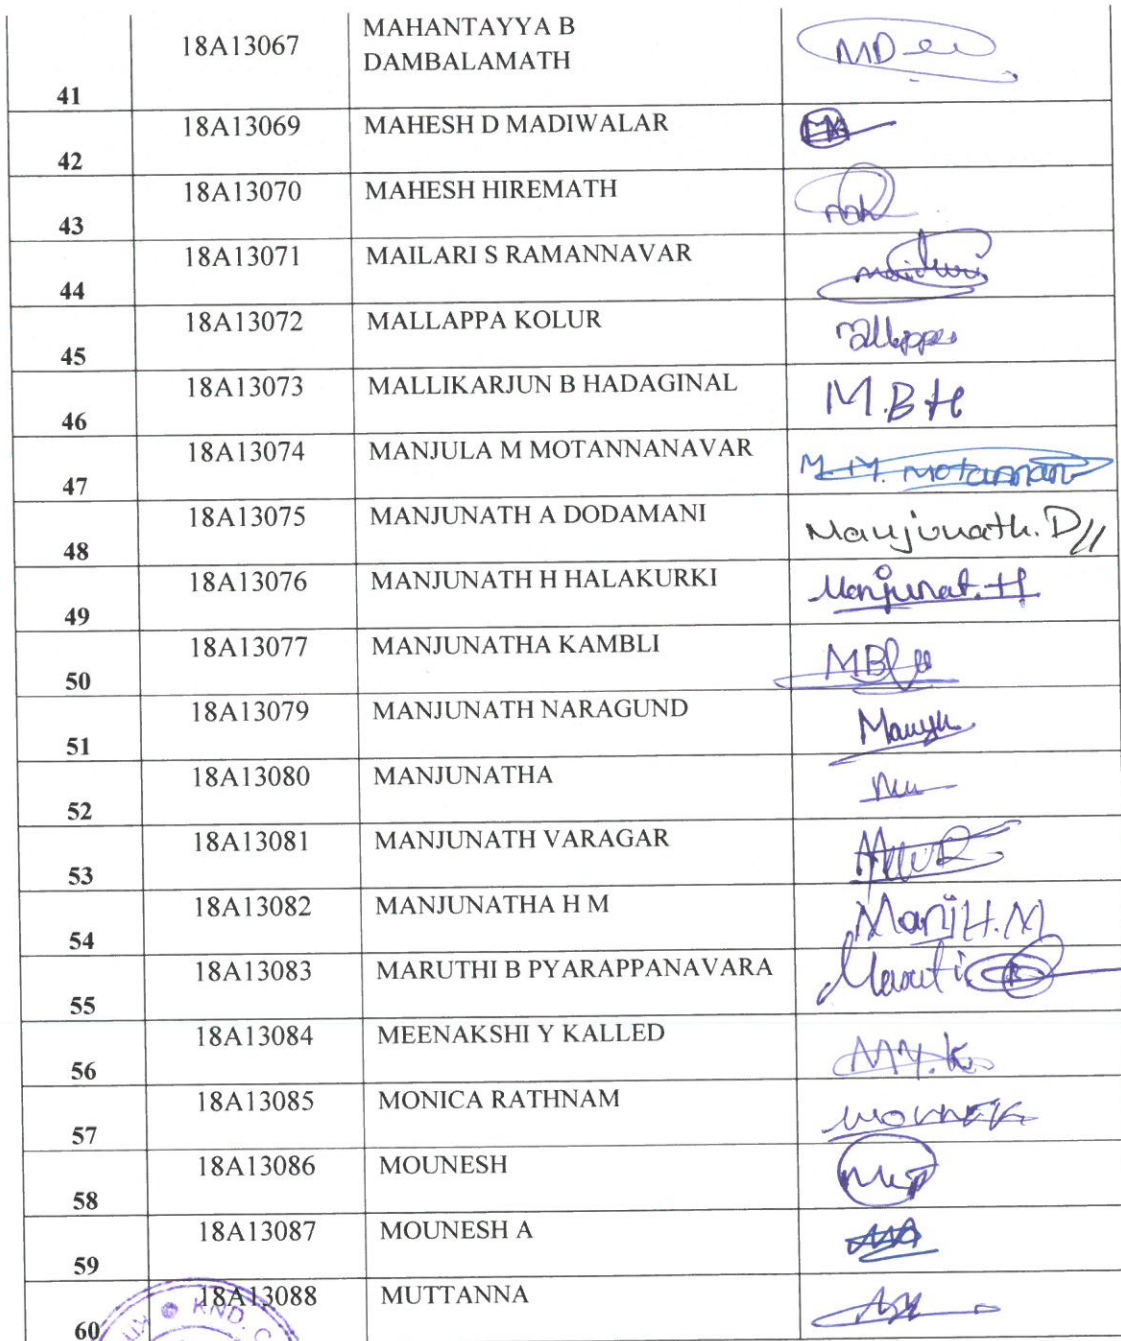 18A13067 MAHANTAYYA B
DAMBALAMATH MD
41
18A13069 MAHESH D MADIWALAR
42
18A13070 MAHESH HIREMATH
43
18A13071 MAILARI S RAMANNAVAR
44
18A13072 MALLAPPA KOLUR
45
18A13073 MALLIKARJUN B HADAGINAL M.B H
46
18A13074 MANJULA M MOTANNANAVAR M.M. Motannan
47
18A13075 MANJUNATH A DODAMANI Manjunath.D//
48
18A13076 MANJUNATH H HALAKURKI Manjunat.H
49
18A13077 MANJUNATHA KAMBLI
50
18A13079 MANJUNATH NARAGUND
51
18A13080 MANJUNATHA
52
18A13081 MANJUNATH VARAGAR
53
18A13082 MANJUNATHA H M Manj H.M
54
18A13083 MARUTHI B PYARAPPANAVARA Maruti
55
18A13084 MEENAKSHI Y KALLED M Y.K
56
18A13085 MONICA RATHNAM
57
18A13086 MOUNESH
58
18A13087 MOUNESH A
59
18A13088 MUTTANNA
60
KND. C